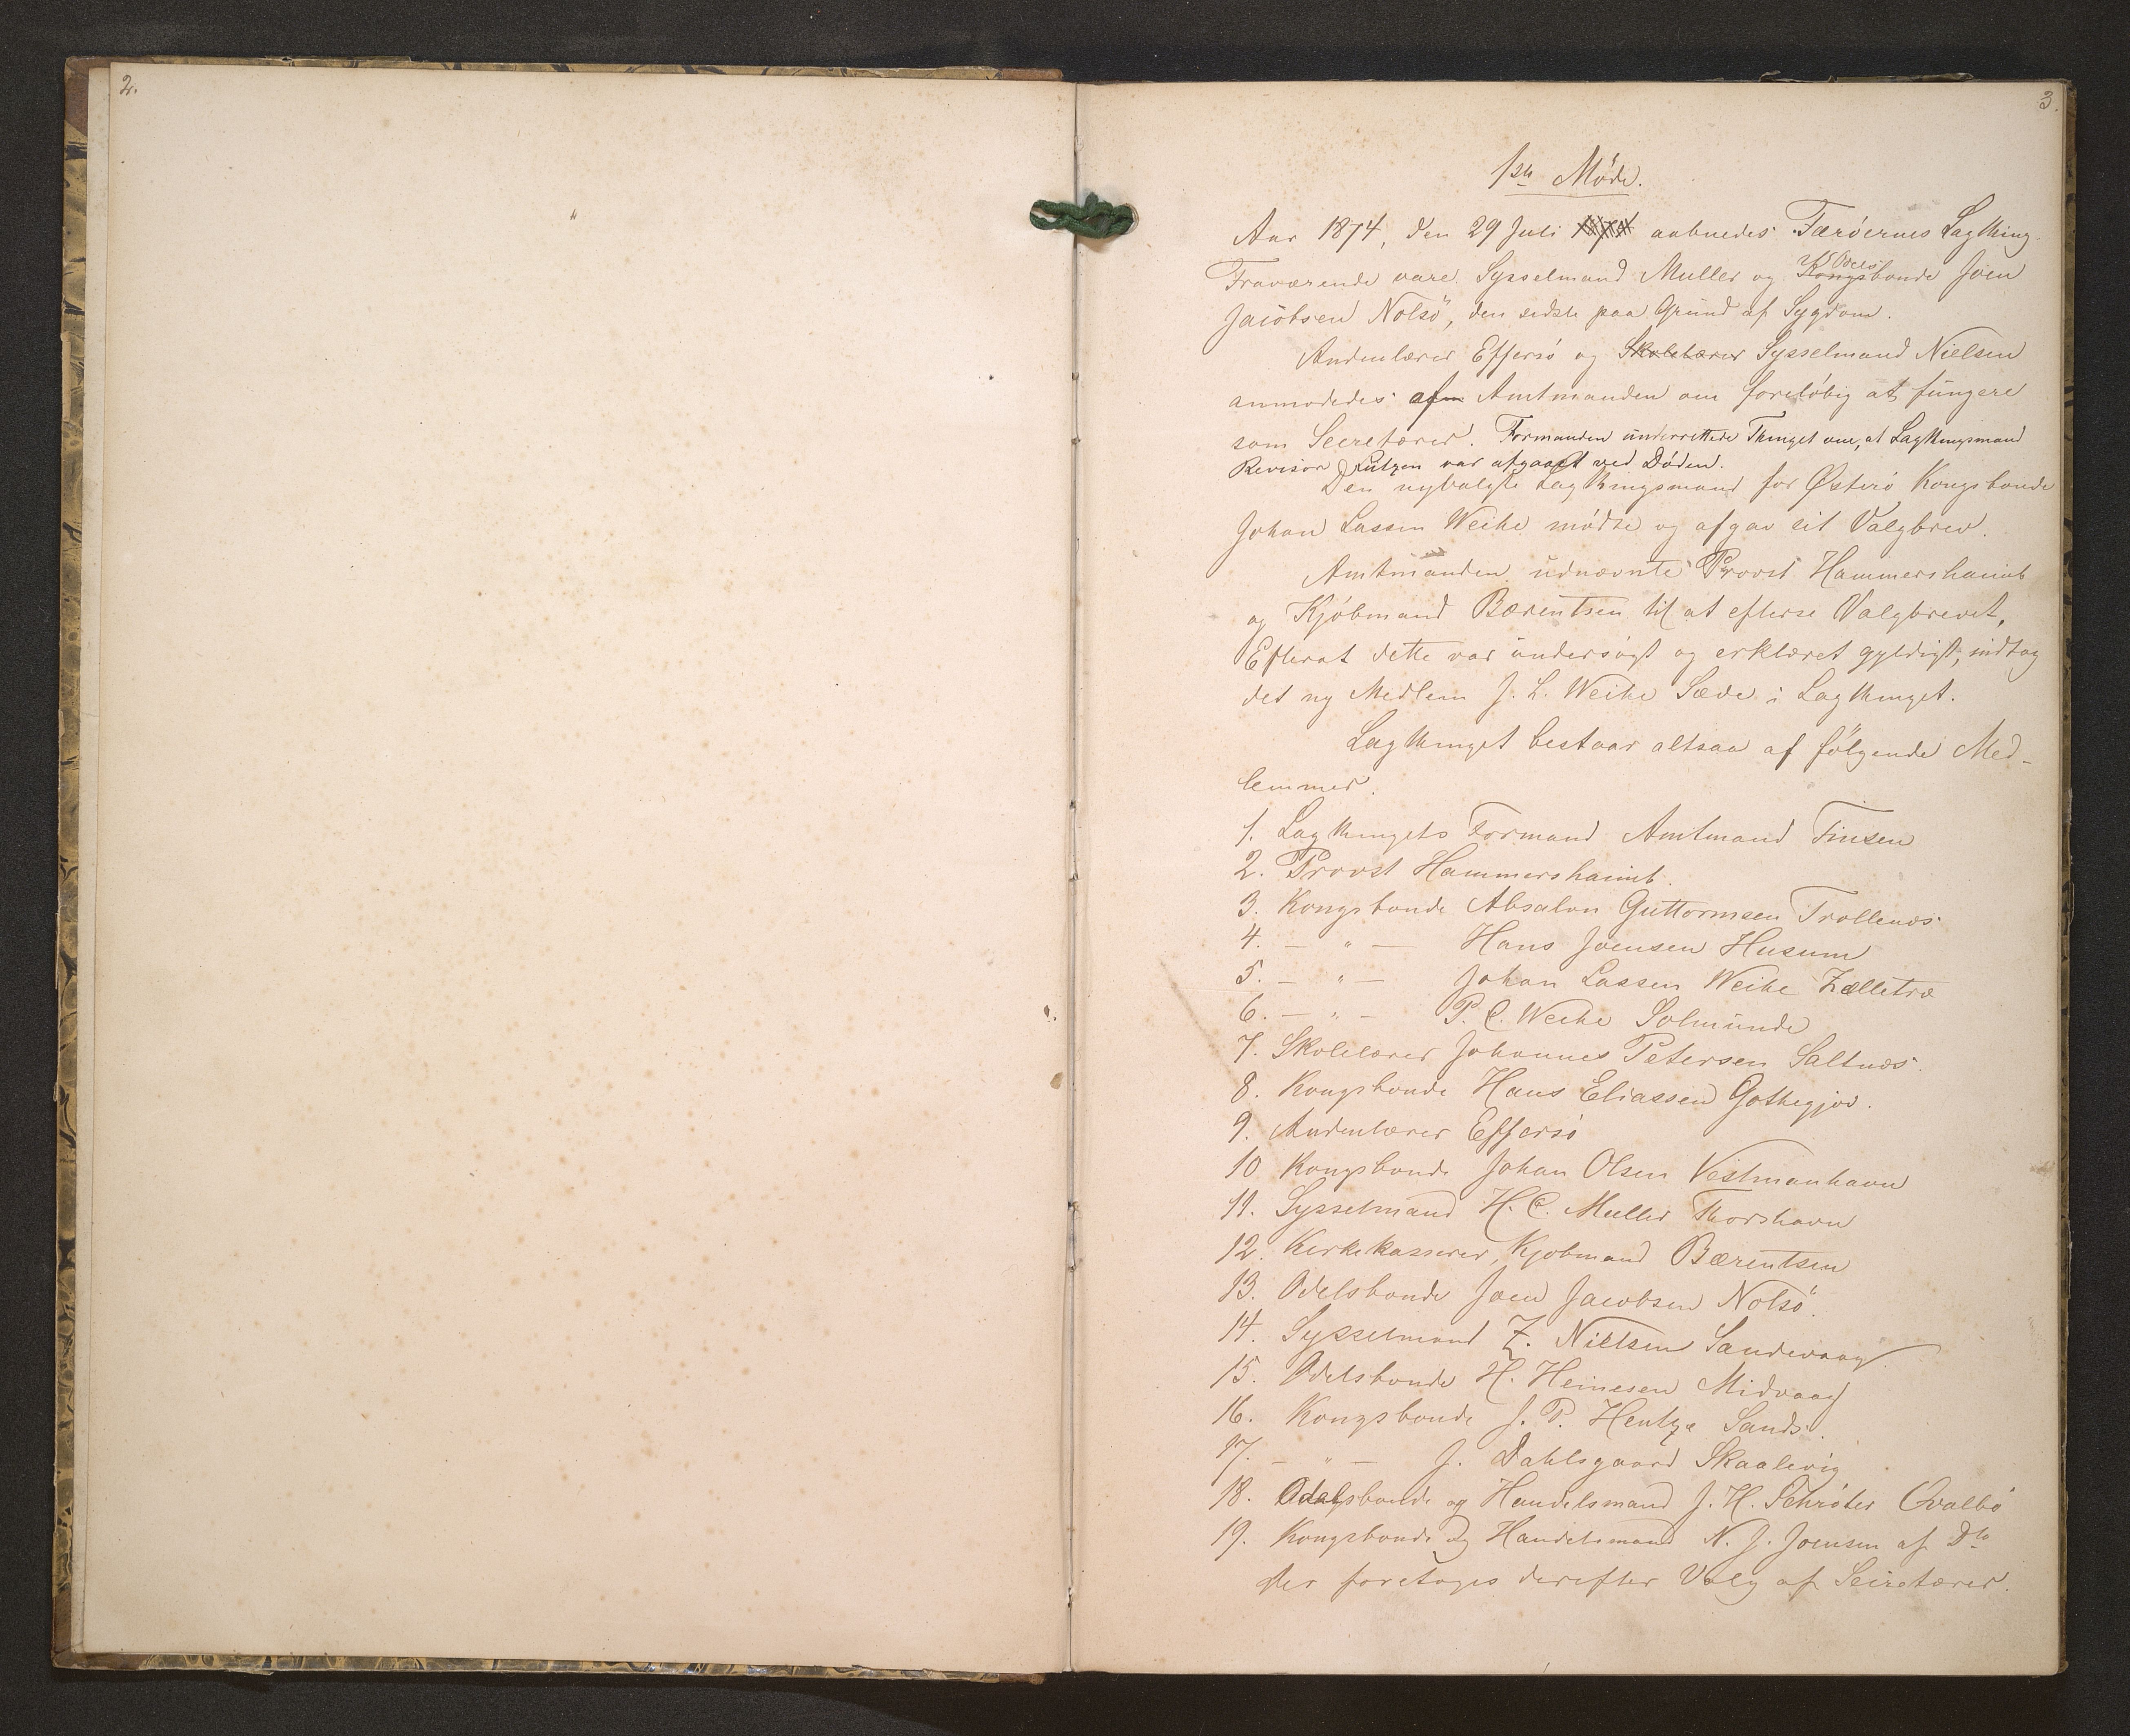 2.
3.
1ste Møde.
Aar 1874, den 29 Juli 1874 aabnedes Færøernes Lagthing.
Fraværende vare Sysselmand Muller og Kongsbonde Odels Joen
Jacobsen Nolsö, den sidste paa Grund af Sygdom.
Andenlærer Effersö og Skolelærer Sysselmand Nielsen
anmodedes af Amtmanden om foreløbig at fungere
som Secretærer. Formanden underrettede Thinget om, at Lagthingsmand
Revisor Lützen var afgaaet ved Døden.
Den nyvalgte Lagthingsmand for Østerö Kongsbonde
Johan Lassen Weihe mødte og afgav sit Valgbrev.
Amtmanden udnævnte Provst Hammershaimb
og Kjøbmand Bærentsen til at efterse Valgbrevet,
Efterat dette var undersøgt og erklæret gyldigt, indtog
det ny Medlem J. L. Weihe Sæde i Lagthinget.
Lagthinget bestaar altsaa af følgende Med-
lemmer.
1. Lagthingets Formand Amtmand Finsen
2. Provst Hammershaimb.
3. Kongsbonde Absalon Guttormsen Trollenæs
4. — " — Hans Joensen Husum
5. — " — Johan Lassen Weihe Zelletræ
6. — " — P. C. Weihe Solmunde
7. Skolelærer Johannes Petersen Saltnæs.
8. Kongsbonde Hans Eliassen Gothegjov.
9. Andenlærer Effersö
10 Kongsbonde Johan Olsen Vestmanhavn
11. Sysselmand H. C. Muller Thorshavn
12. Kirkekasserer, Kjøbmand Bærentsen
13. Odelsbonde Joen Jacobsen Nolsö.
14. Sysselmand Z. Nielsen Sandevaag.
15. Odelsbonde H. Heinesen Midvaag
16. Kongsbonde J. P. Hentze Sands.
17. — " — J. Dahlsgaard Skaalevig
18. Odelsbonde og Handelsmand J. H. Schröter Qvalbö
19. Kongsbonde og Handelsmand N. J. Joensen af Dto
Der foretoges derefter Valg af Secretærer.